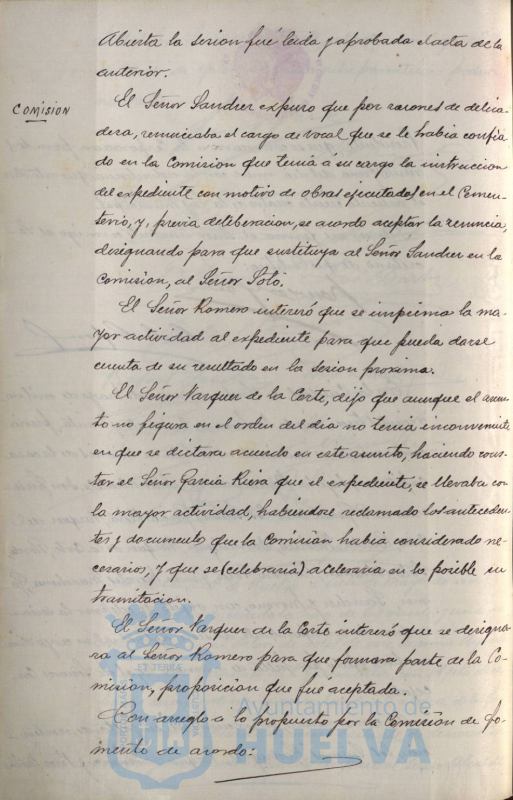 Abierta la sesion fué leida y aprobada el acta de la
anterior.
COMISION
El Señor Sandrer expuso que por razones de delica-
deza, renunciaba el cargo de vocal que se le habia confia-
do en la Comision que tenia á su cargo la instruccion
del expediente con motivo de obras ejecutadas en el Cemen-
terio, y, previa deliberacion, se acordo aceptar la renuncia,
designando para que sustituya al Señor Sandrer en la
Comision, al Señor Soló.
El Señor Romero interesó que se imprima la ma-
yor actividad al expediente para que pueda darse
cuenta de su resultado en la sesion proxima.
El Señor Vazquez de la Corte, dijo que aunque el asun-
to no figura en el orden del dia no tenia inconveniente
en que se dictara acuerdo en este asunto, haciendo cons-
tar el Señor Garcia Riera que el expediente, se llevaba con
la mayor actividad, habiendose reclamado los anteceden-
tes y documentos que la Comision habia considerado ne-
cesarios, y que se (celebraria) aceleraria en lo posible su
tramitacion.
El Señor Vazquez de la Corte interesó que se designa-
ra al Señor Romero para que formara parte de la Co-
mision, proposicion que fué aceptada.
Con arreglo á lo propuesto por la Comision de Fo-
mento se acordo:
Ayuntamiento de
HUELVA